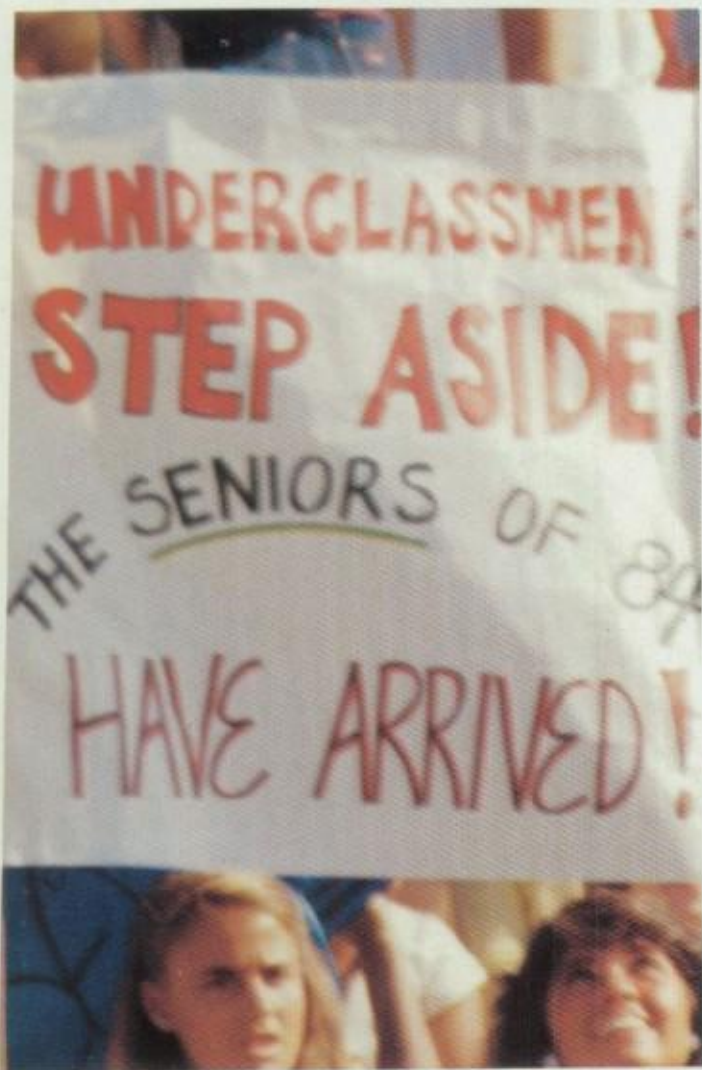 UNDERCLASSMEN:
STEP ASIDE!
THE SENIORS OF 84
HAVE ARRIVED!